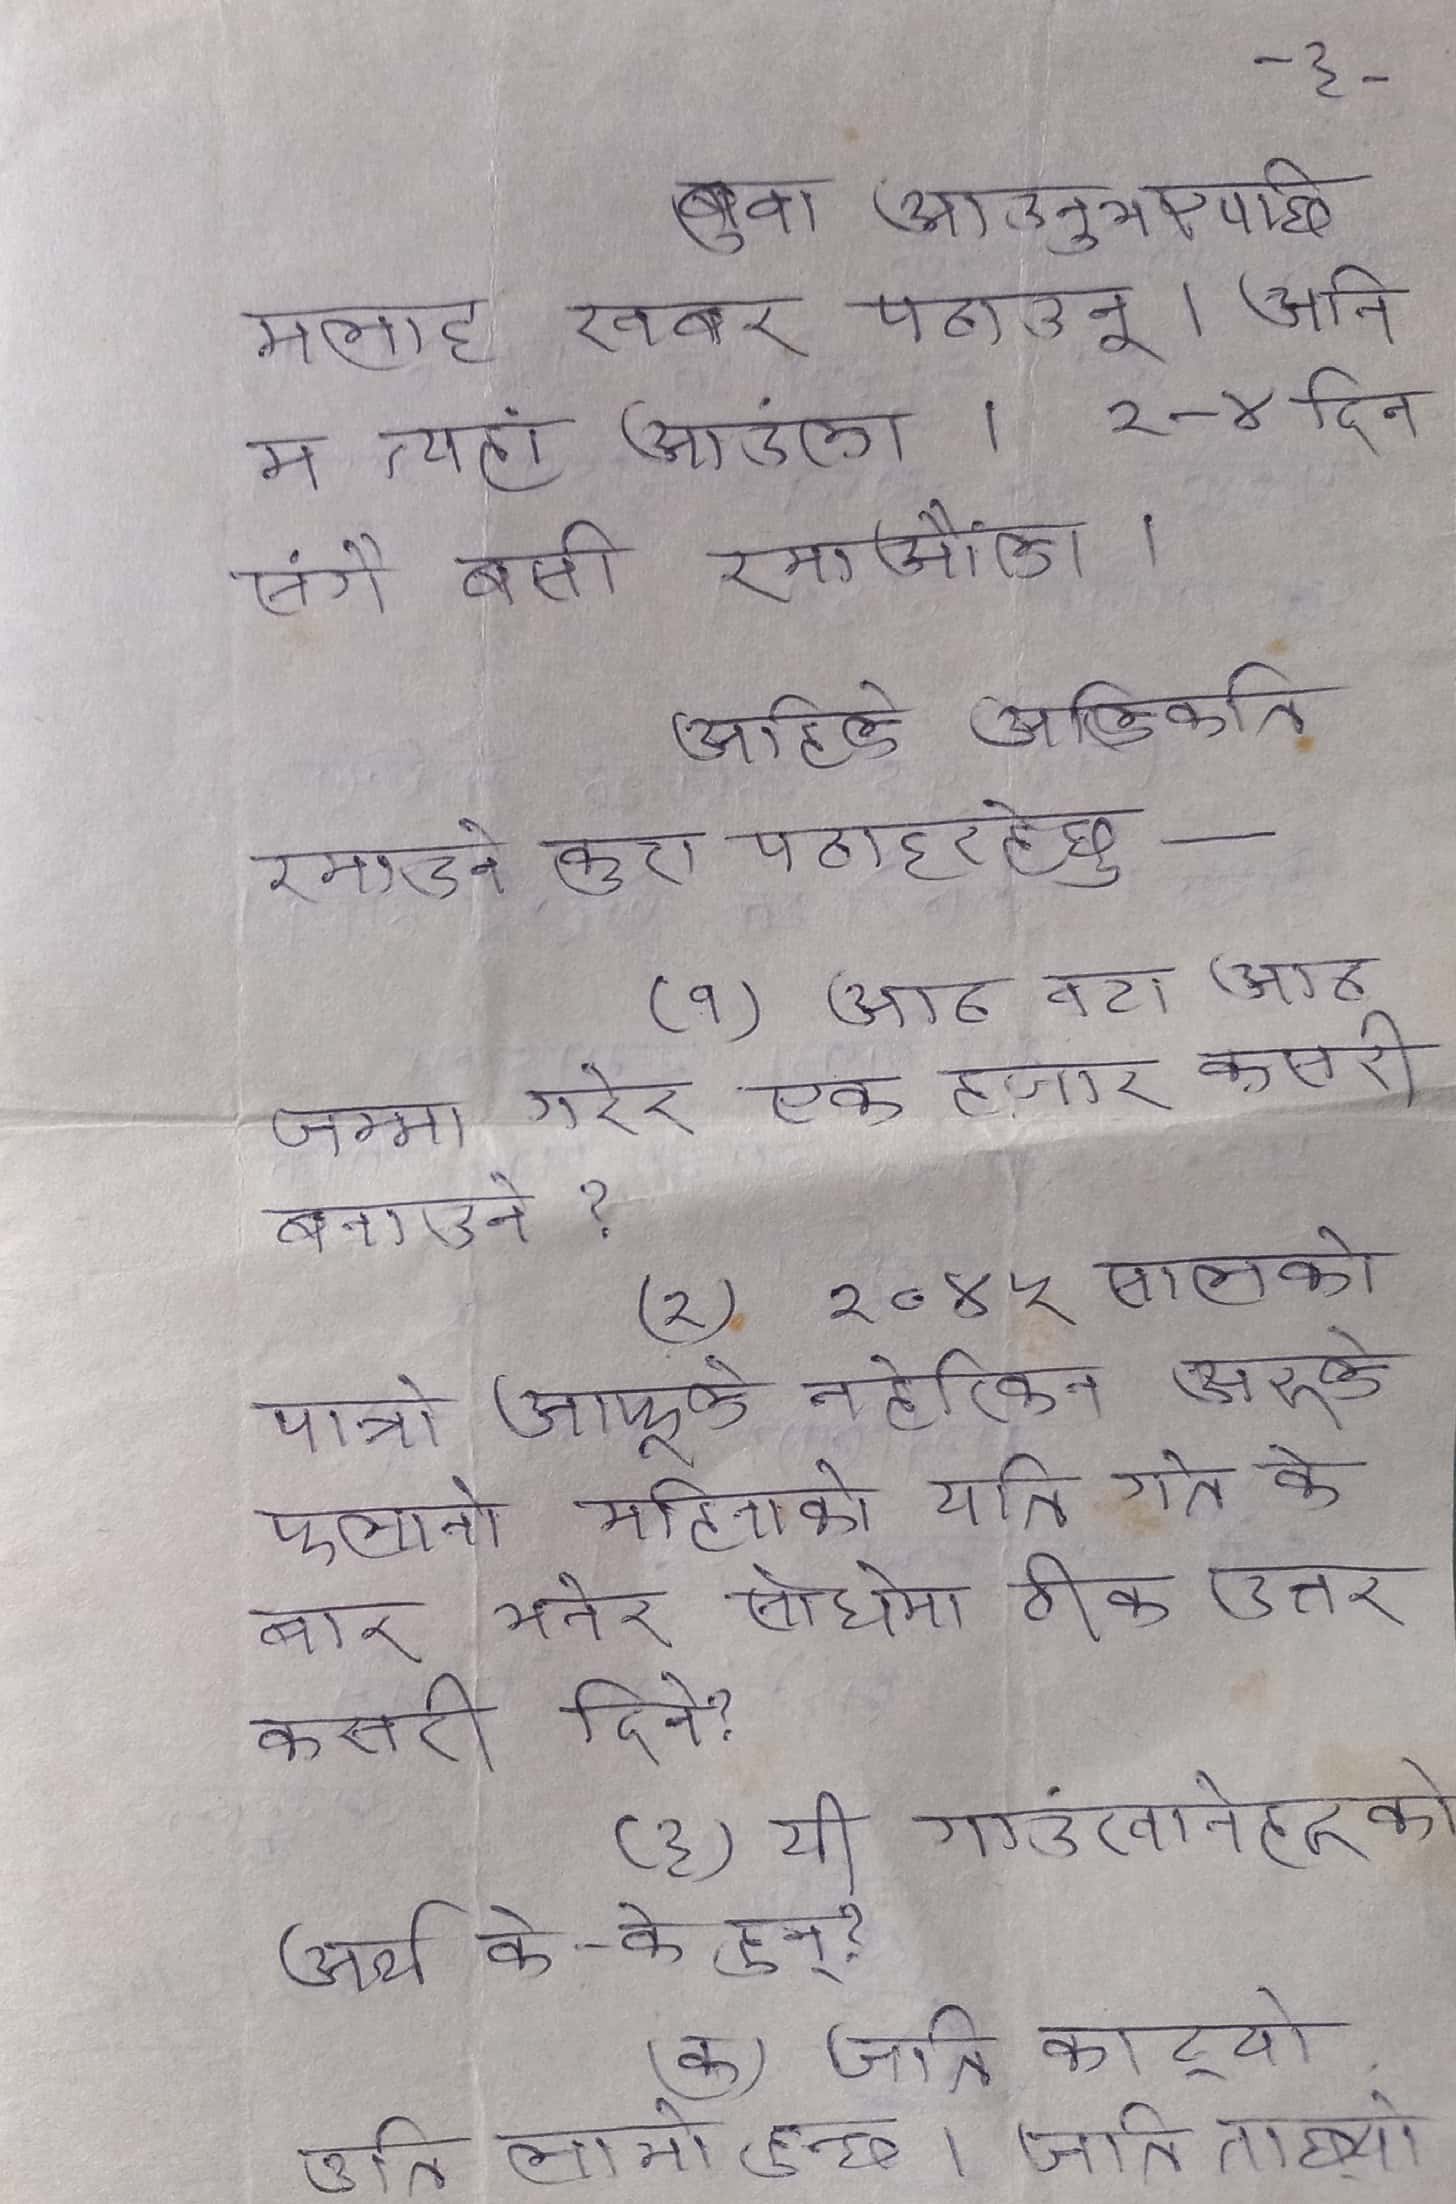 -३-
बुवा आउनुभएपछि
मलाई खबर पठाउनू । अनि
म त्यहां आउंला । २-४ दिन
संगै बसी रमाऔंला ।
अहिले अलिकति
रमाउने कुरा पठाइरहेछु —
(१) आठ वटा आठ
जम्मा गरेर एक हजार कसरी
बनाउने ?
(२) २०४५ सालको
पात्रो आफूले नहेरिकन अरूले
फलानो महिनाको यति गते के
बार भनेर सोधेमा ठीक उत्तर
कसरी दिने?
(३) यी गाउंखानेहरूको
अर्थ के-के हुन्?
(क) जति काट्यो
उति लामो हुन्छ । जति ताछ्यो